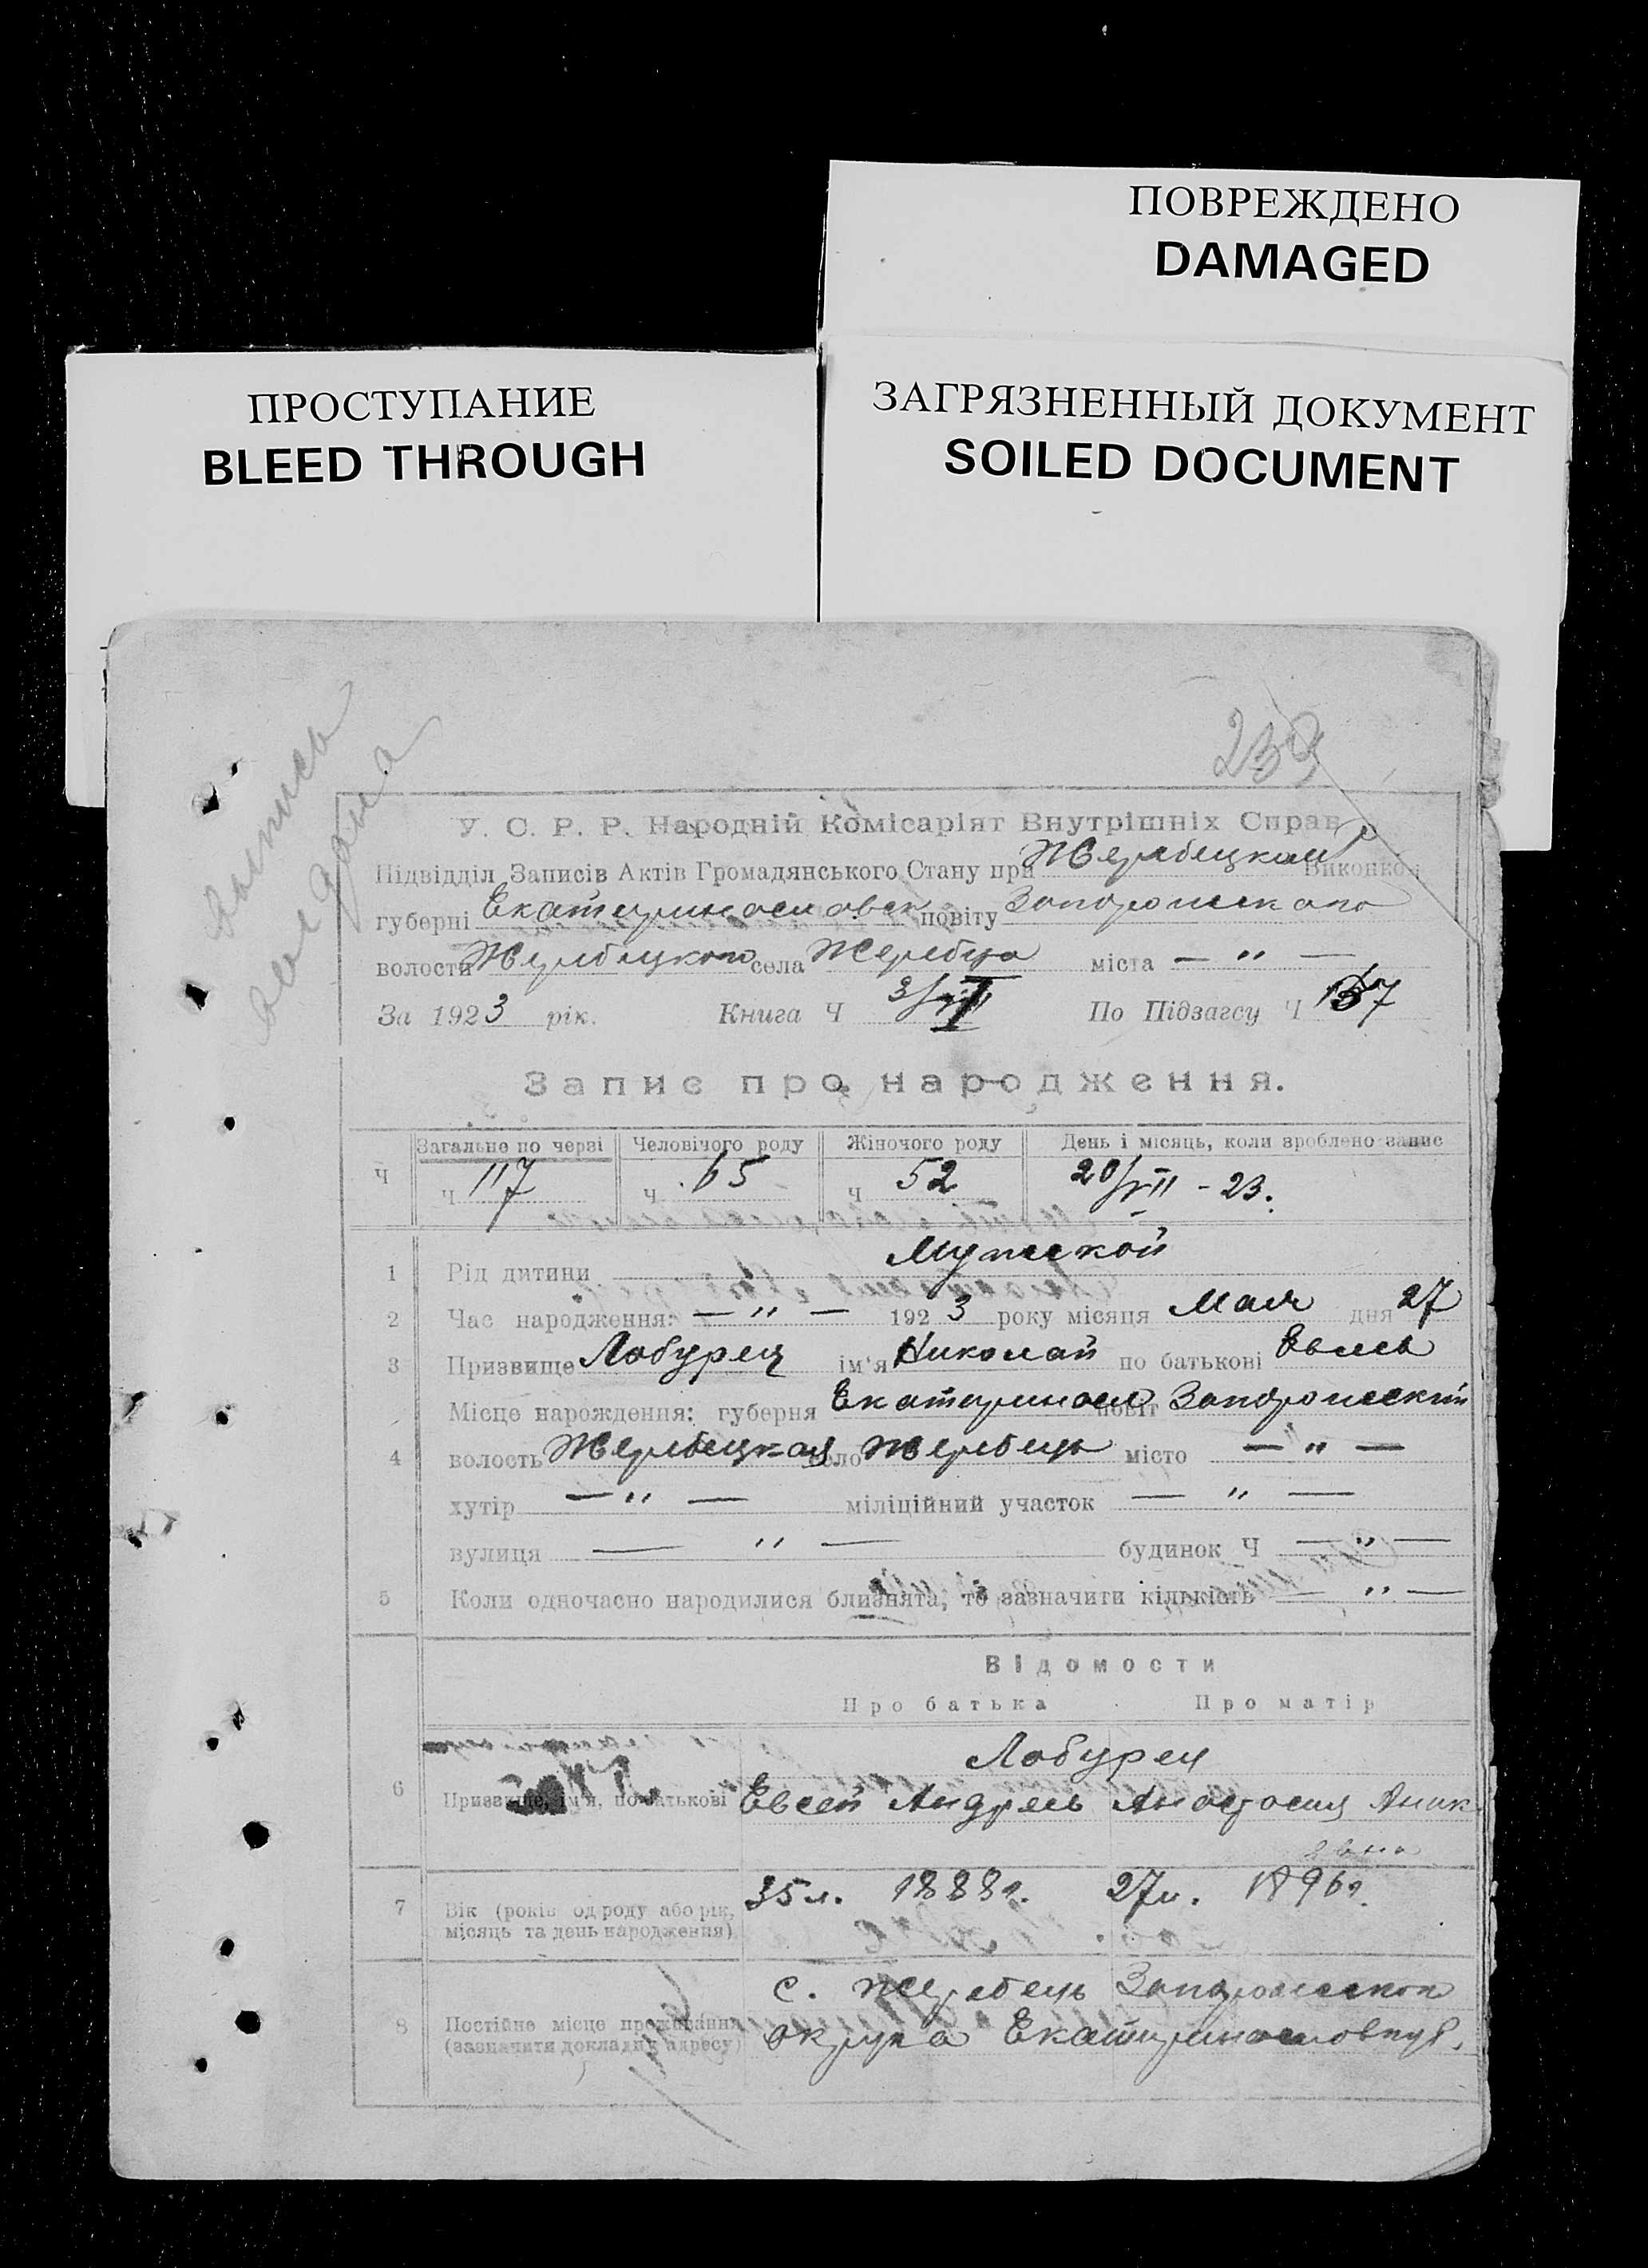 ПОВРЕЖДЕНО
DAMAGED
ПРОСТУПАНИЕ
BLEED THROUGH
ЗАГРЯЗНЕННЫЙ ДОКУМЕНТ
SOILED DOCUMENT
239
У. С. Р. Р. Народній Комісаріят Внутрішніх Справ
Підвідділ Записів Актів Громадянського Стану при Жеребецком Виконком
губерні Екатеринославск повіту Запорожского
волости Жеребецкого села Жеребца міста — " —
За 1923 рік. Книга Ч По Підзагсу Ч 157
Запис про народження.
Загальне по черзі Человічого роду Жіночого роду День і місяць, коли зроблено запис
Ч Ч 117 Ч 65 Ч 52 20/VII - 23.
1 Рід дитини Мужской
2 Час народження: — " — 1923 року місяця Мая дня 27
3 Призвище Лобурец ім'я Николай по батькові Евсев
Місце нарождення: губерня Екатериносл повіт Запорожский
4 волость Жеребецкая село Жеребець місто — " —
хутір — " — міліційний участок — " —
вулиця — " — будинок Ч — " —
5 Коли одночасно народилися близнята, то зазначити кількість — " —
Відомости
Про батька Про матір
Лобурец
6 Призвище, ім'я, по батькові Евсей Андреев Анастасия Аник
евна
7 Вік (років од роду або рік, 35 л. 1888 г. 27 л. 1896 г.
місяць та день народження)
с. Жеребець Запорожского
8 Постійне місце проживання
(зазначити докладну адресу) округа Екатеринославгуб.